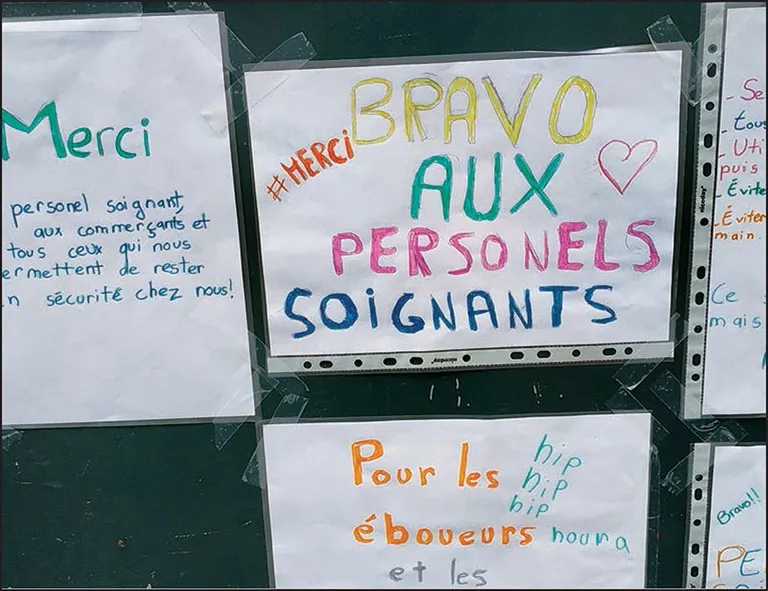 Merci
personel soignant,
aux commerçants et
tous ceux qui nous
ermettent de rester
n sécurité chez nous!
#MERCi
BRAVO
AUX
PERSONELS
SOiGNANTS
Pour les
éboueurs
et les
hip
hip
hip
houra
- Se
- tous
- Uti
puis
- Évite
- Éviter
main.
Ce
mais
Bravo!!
PE